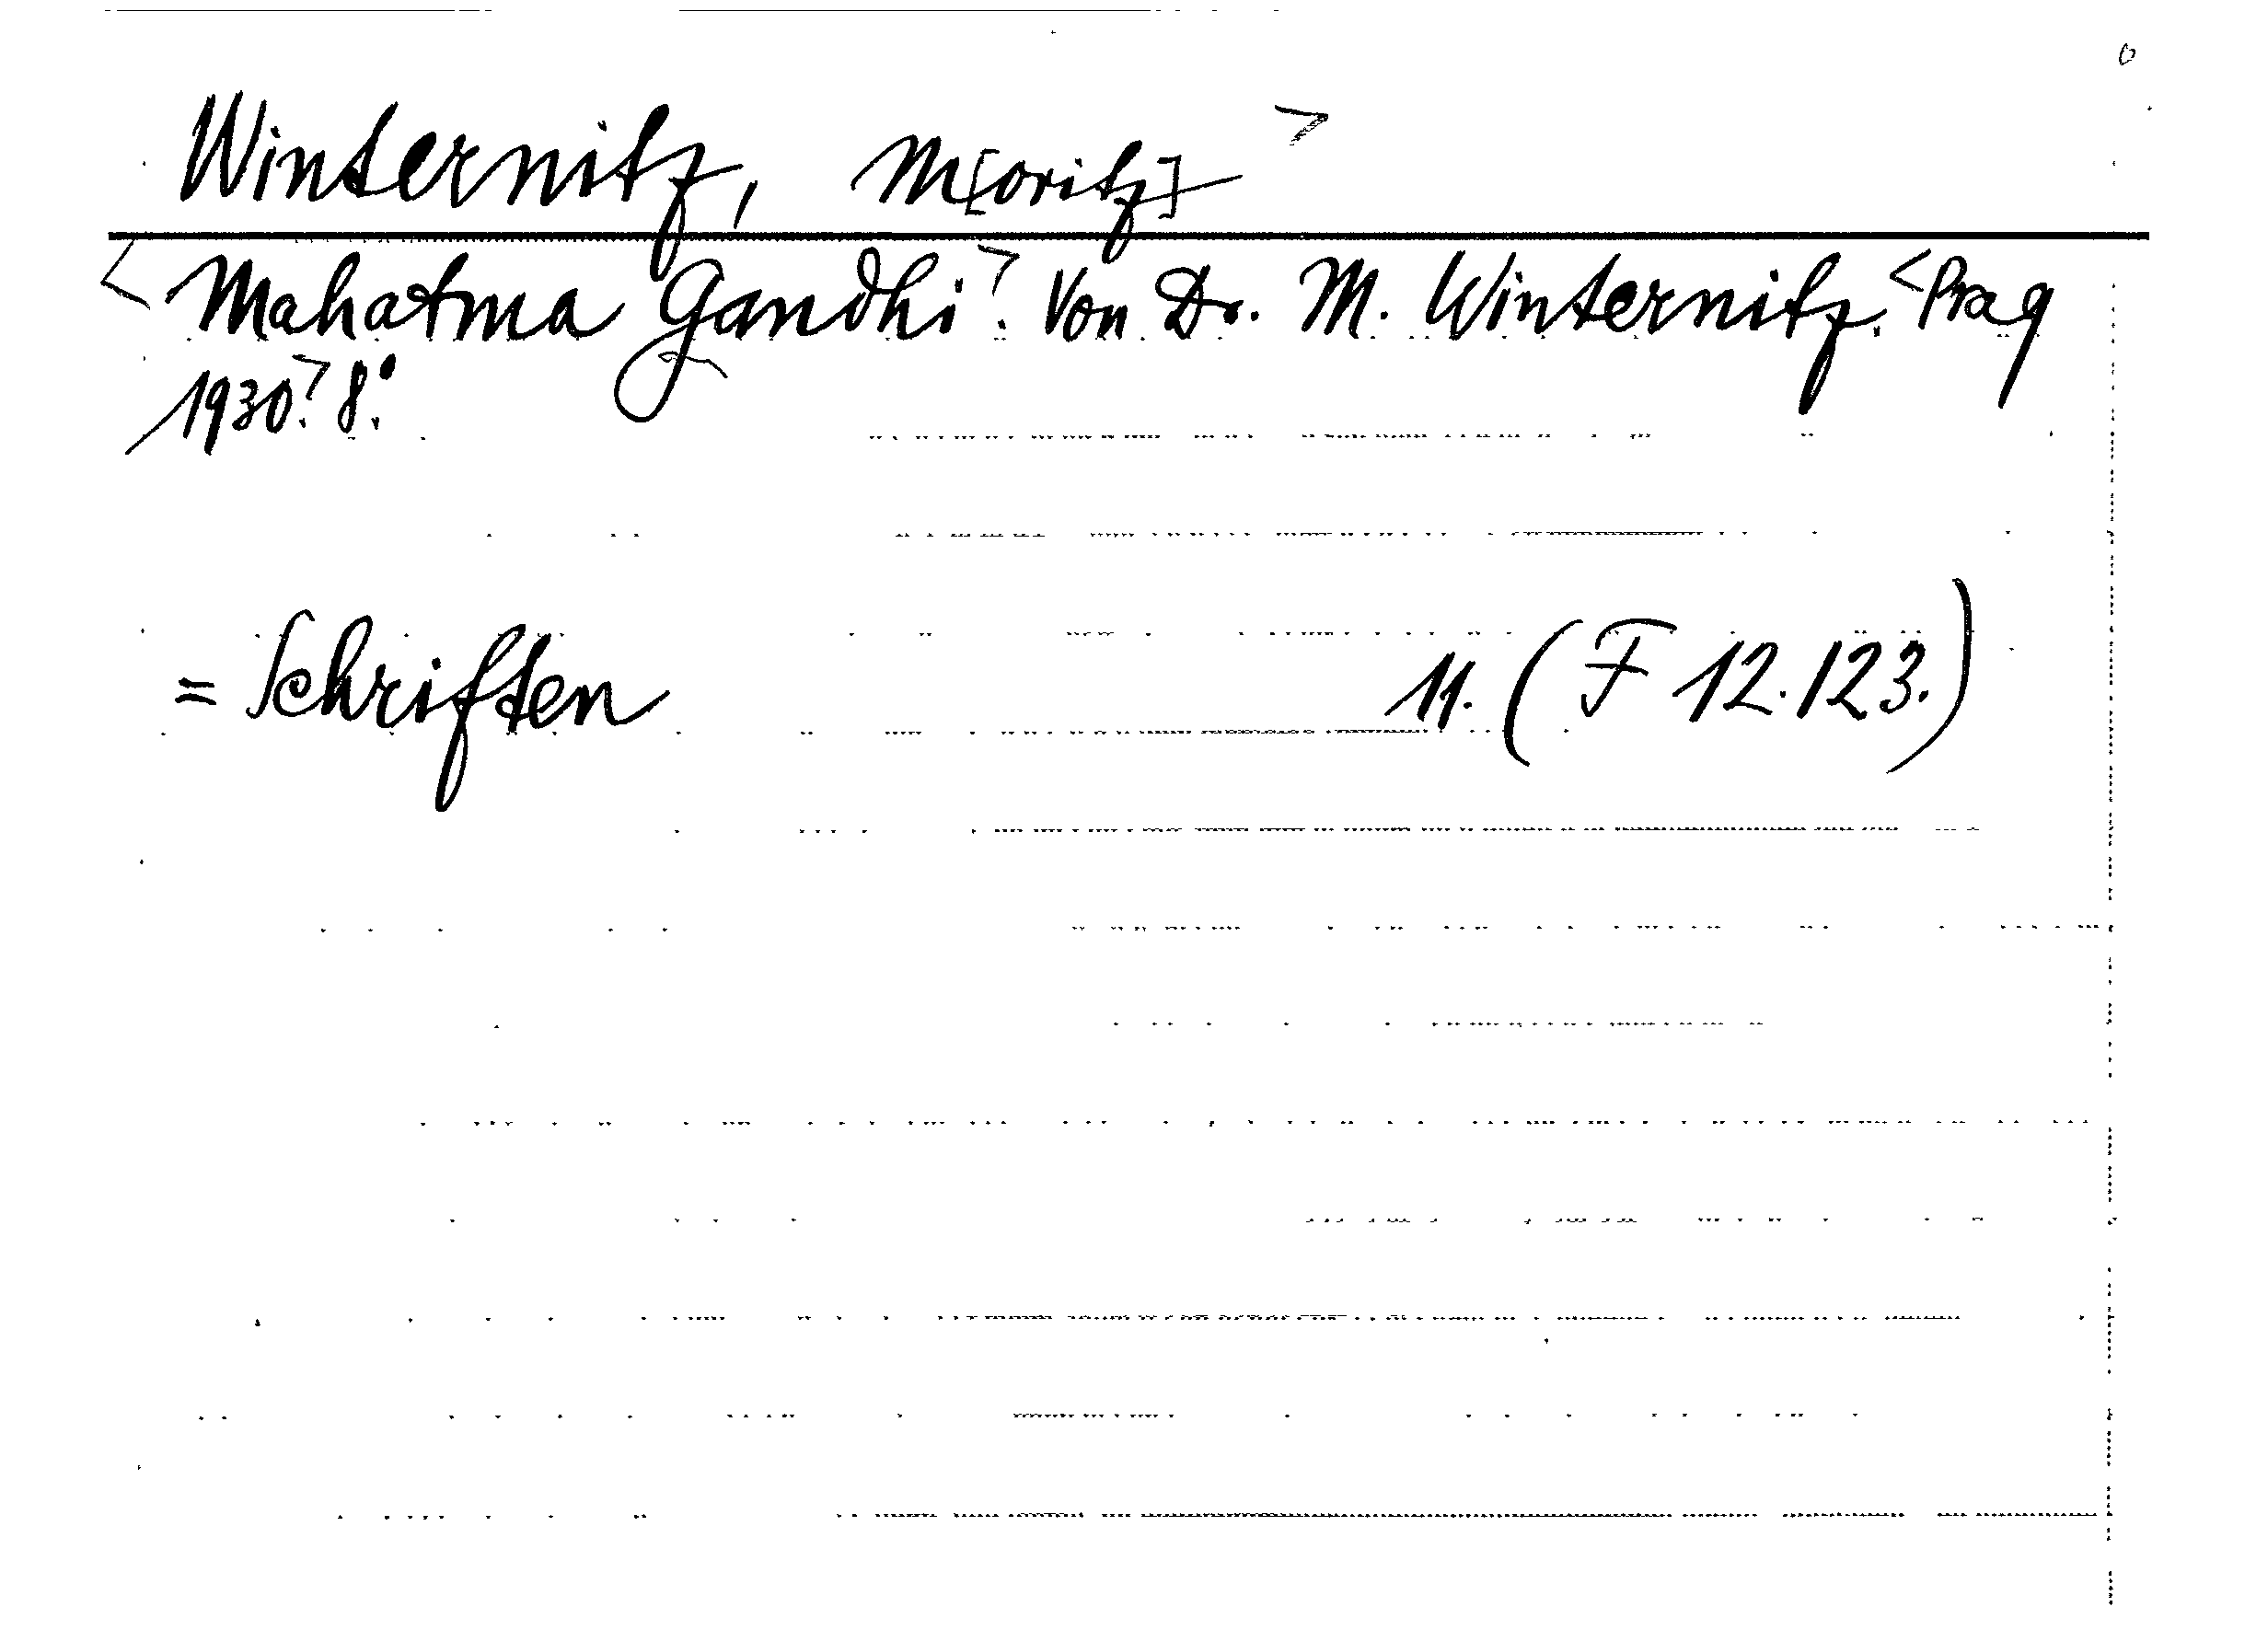 Winternitz, M[oritz] >
< Mahatma Gandhi >. Von Dr. M. Winternitz. < Prag
1930. > 8.°
= Schriften 11. (F 12.123.)